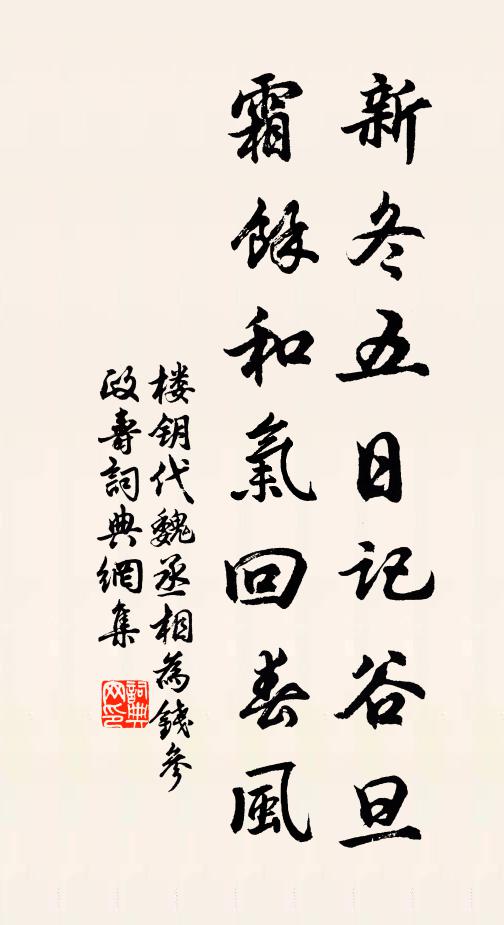 新冬五日記谷旦
霜餘和氣回春風
楼钥代魏丞相為錢參
政壽詞典網集
詞典網印